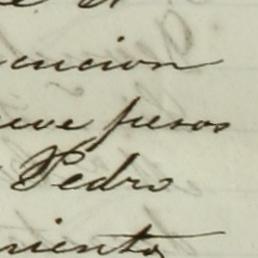 encion
ueve pesos
Pedro
miento